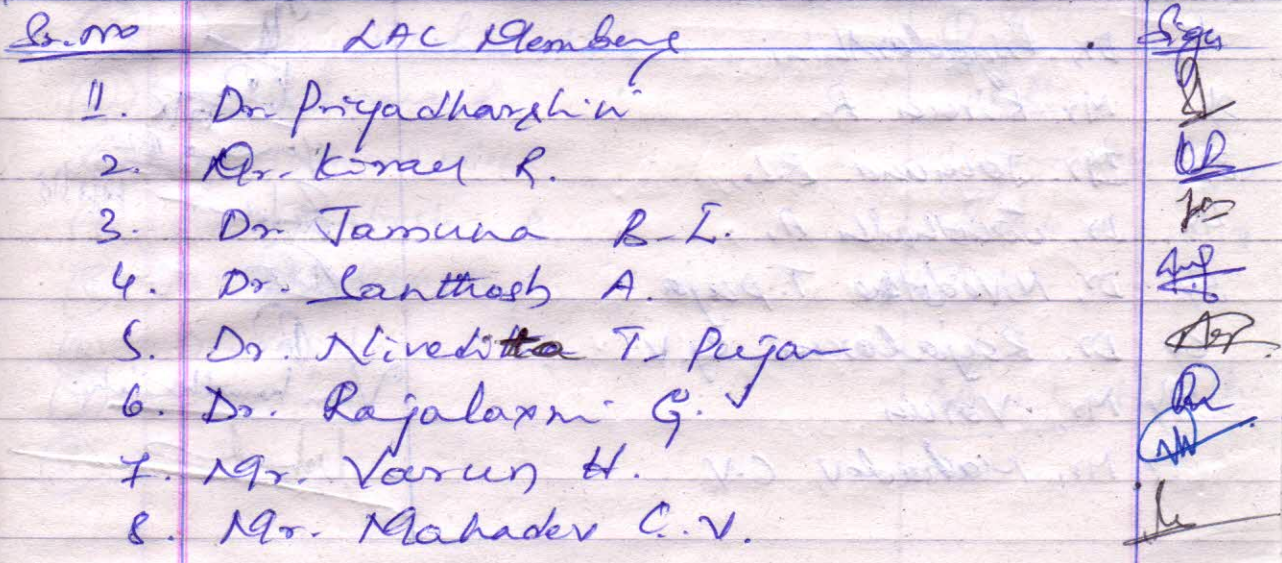 Sr. no LAC Members Sign
1. Dr. Priyadharshini
2. Mr. Kiran R.
3. Dr. Jamuna B.L.
4. Dr. Santhosh A.
5. Dr. Niveditta T. Pujar
6. Dr. Rajalaxmi G.
7. Mr. Varun H.
8. Mr. Mahadev C.V.